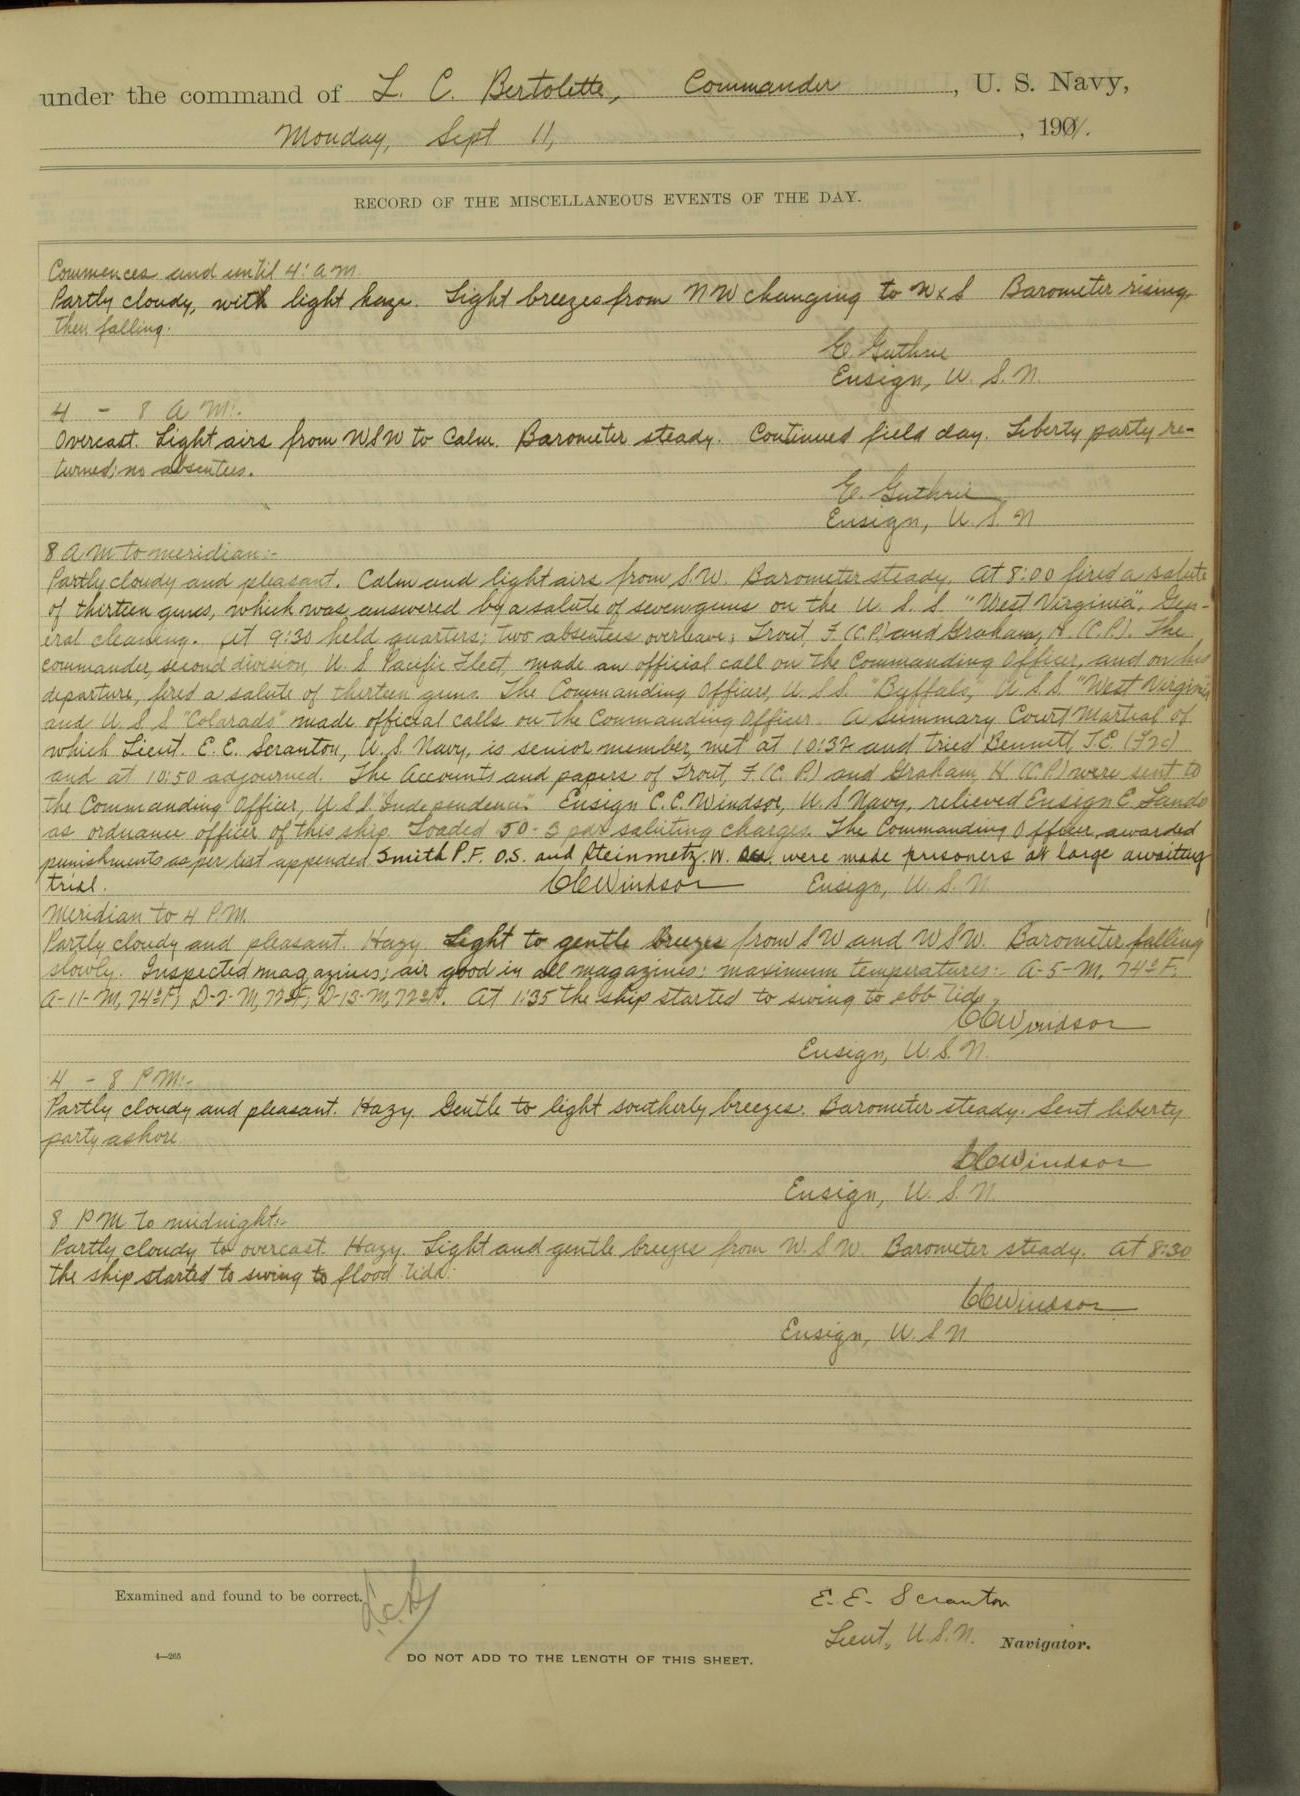 under the command of L. C. Bertolette, Commander, U. S. Navy,
Monday, Sept 11, , 1901.
RECORD OF THE MISCELLANEOUS EVENTS OF THE DAY.
Commences and until 4: a m.
Partly cloudy, with light haze. Light breezes from NW changing to WxS Barometer rising,
then falling.
E. Guthrie
Ensign, U. S. N.
4 - 8 A M:-
Overcast. Light airs from WSW to Calm. Barometer steady. Continued field day. Liberty party re-
turned; no absentees.
E. Guthrie
Ensign, U. S. N
8 A M to meridian:-
Partly cloudy and pleasant. Calm and light airs from S.W. Barometer steady. At 8:00 fired a salute
of thirteen guns, which was answered by a salute of seven guns on the U. S. S. "West Virginia". Gen-
eral cleaning. At 9:30 held quarters; two absentees overleave; Trout, F. (C.P.) and Graham, H. (C.P.). The
commander, second division, U. S. Pacific Fleet, made an official call on the Commanding Officer, and on his
departure, fired a salute of thirteen guns. The Commanding Officers, U. S. S. "Buffalo," U. S. S. "West Virginia"
and U. S. S "Colorado" made official calls on the Commanding Officer. A Summary Court Martial of
which Lieut. E. E. Scranton, U. S. Navy, is senior member, met at 10:32 and tried Bennett, J. E. (F2c)
and at 10:50 adjourned. The Accounts and papers of Trout, F. (C. P.) and Graham, H (C.P.) were sent to
the Commanding Officer, U S S "Independence". Ensign C. C. Windsor, U. S Navy, relieved Ensign E. Lando
as ordnance officer of this ship. Loaded 50 - 3 pdr saluting charges. The Commanding Officer awarded
punishments as per list appended. Smith P. F. O.S. and Steinmetz. W. were made prisoners at large awaiting
trial. CCWindsor Ensign, U. S. N.
Meridian to 4 P M.
Partly cloudy and pleasant. Hazy. Light to gentle breezes from SW and WSW. Barometer falling
slowly. Inspected magazines; air good in all magazines; maximum temperatures:- A-5-M, 74° F;
A-11-M, 74° F; D-2-M, 72° F; D-13-M, 72° F. At 1:35 the ship started to swing to ebb tide.
CCWindsor
Ensign, U. S. N.
4 - 8 P M:-
Partly cloudy and pleasant. Hazy. Gentle to light southerly breezes. Barometer steady. Sent liberty
party ashore
CCWindsor
Ensign, U. S. N.
8 P M to midnight:-
Partly cloudy to overcast. Hazy. Light and gentle breezes from W. S W. Barometer steady. At 8:30
the ship started to swing to flood tide.
CCWindsor
Ensign, U. S N
Examined and found to be correct. L.C.B.
E. E. Scranton
Lieut., U. S. N. Navigator.
4—265
DO NOT ADD TO THE LENGTH OF THIS SHEET.